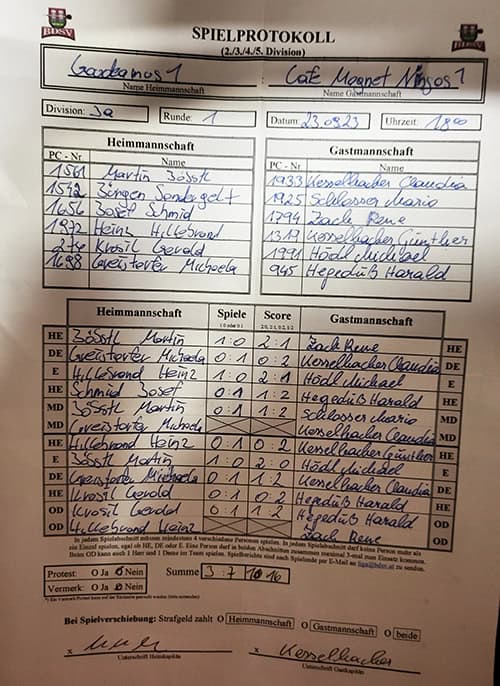 BDSV
BDSV
SPIELPROTOKOLL
(2./3./4./5. Division)
1 Cafe Magnet 1
Name Heimmannschaft Name Gastmannschaft
Division: 5a Runde: 1 Datum: 23.09.23 Uhrzeit: 18 00
Heimmannschaft Gastmannschaft
PC - Nr. Name PC - Nr. Name
1561 Martin Zösstl 1933 Kesselbacher Claudia
1542 1925 Schlosser Mario
1656 Josef Schmid 1794 Zach Rene
1972 Heinz Hillebrand 1319 Kesselbacher Günther
Krosil Gerold 1991 Hödl Michael
1698 Greistorfer Michaela 945 Hegedüß Harald
Heimmannschaft Spiele Score Gastmannschaft
1:0 oder 0:1 2:0, 2:1, 0:2, 1:2
HE Zösstl Martin 1:0 2:1 Zach Rene HE
DE Greistorfer Michaela 0:1 0:2 Kesselbacher Claudia DE
E Hillebrand Heinz 1:0 2:1 Hödl Michael E
HE Schmid Josef 0:1 1:2 Hegedüß Harald HE
MD Zösstl Martin 0:1 1:2 Schlosser Mario MD
MD Greistorfer Michaela Kesselbacher Claudia MD
HE Hillebrand Heinz 0:1 0:2 Kesselbacher Günther HE
E Zösstl Martin 1:0 2:0 Hödl Michael E
DE Greistorfer Michaela 0:1 1:2 Kesselbacher Claudia DE
HE Krosil Gerold 0:1 0:2 Hegedüß Harald HE
OD Krosil Gerold 0:1 1:2 Hegedüß Harald OD
OD Hillebrand Heinz Zach Rene OD
In jedem Spielabschnitt müssen mindestens 4 verschiedene Personen spielen. In jedem Spielabschnitt darf keine Person mehr als
ein Einzel spielen, egal ob HE, DE oder E. Eine Person darf in beiden Abschnitten zusammen maximal 3-mal zum Einsatz kommen.
Beim OD kann auch 1 Herr und 1 Dame im Team spielen. Spielberichte sind nach Spielende per E-Mail an liga@bdsv.at zu senden.
Protest: O Ja O Nein Summe 3 : 7 10 16
Vermerk: O Ja O Nein
Bei Spielverschiebung: Strafgeld zahlt O Heimmannschaft O Gastmannschaft O beide
x x Kesselbacher
Unterschrift Heimkapitän Unterschrift Gastkapitän